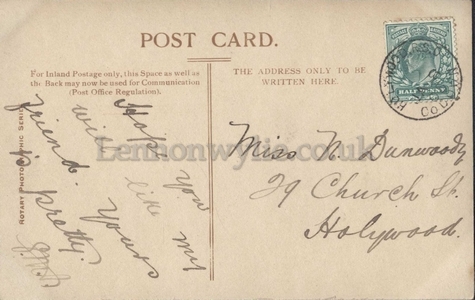 POST CARD.
For Inland Postage only, this Space as well as
the Back may now be used for Communication
(Post Office Regulation).
THE ADDRESS ONLY TO BE
WRITTEN HERE.
HALF PENNY
CO. DOWN
ROTARY PHOTOGRAPHIC SERIES
Hope you
will like my
friend. Yours
is pretty.
Miss N. Dunwoody
29 Church St.
Holywood.
Lennonwylie.co.uk